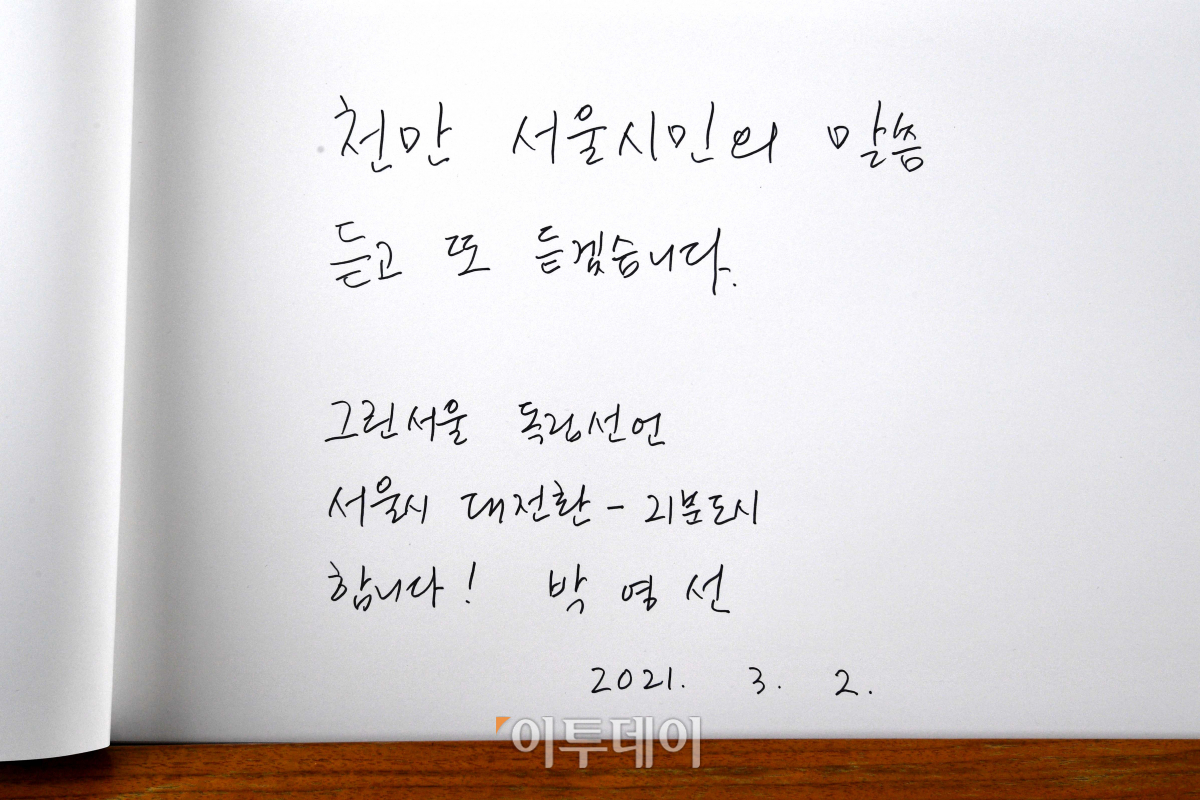 천만 서울시민의 말씀
듣고 또 듣겠습니다.
그린서울 독립선언
서울시 대전환 - 21분도시
합니다! 박영선
2021. 3. 2.
이투데이